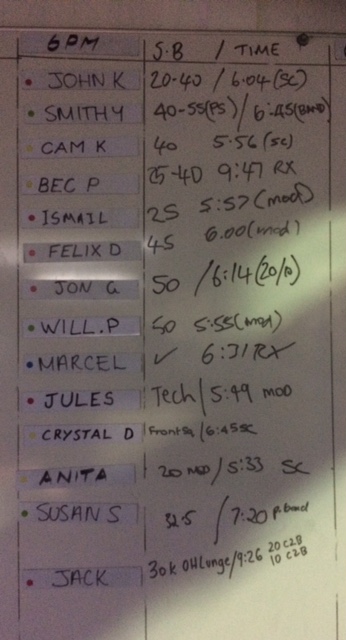 6PM S.B / TIME
JOHN K 20-40 / 6.04 (SC)
SMITHY 40-55(PS) / 6:45(BAND)
CAM K 40 5:56 (SC)
BEC P 25-40 9:47 RX
ISMAIL 25 5:57 (mod)
FELIX D 45 6.00 (mod)
JON G 50 / 6:14 (20/10)
WILL.P 50 5:55 (mod)
MARCEL ✓ 6:31 RX
JULES Tech / 5:49 MOD
CRYSTAL D Front Sq / 6:45 SC
ANITA 20 MOD / 5:33 SC
SUSAN S 32.5 / 7:20 P.band
JACK 30k OH Lunge / 9:26 20 C2B
10 C2B